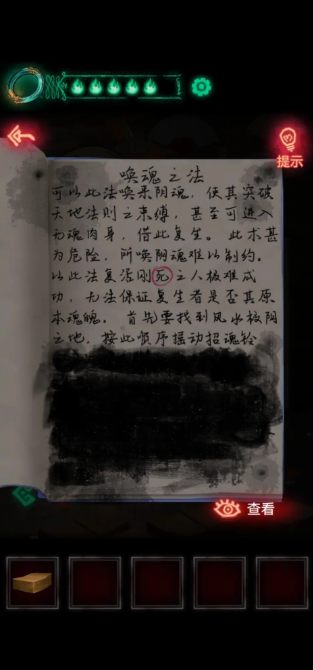 提示
唤魂之法
可以此法唤来阴魂，使其突破
天地法则之束缚，甚至可进入
无魂肉身，借此复生。此术甚
为危险，所唤阴魂难以制约。
以此法复活刚死之人极难成
功，无法保证复生者是否其原
本魂魄。首先要找到风水极阴
之地，按此顺序摇动招魂铃
查看